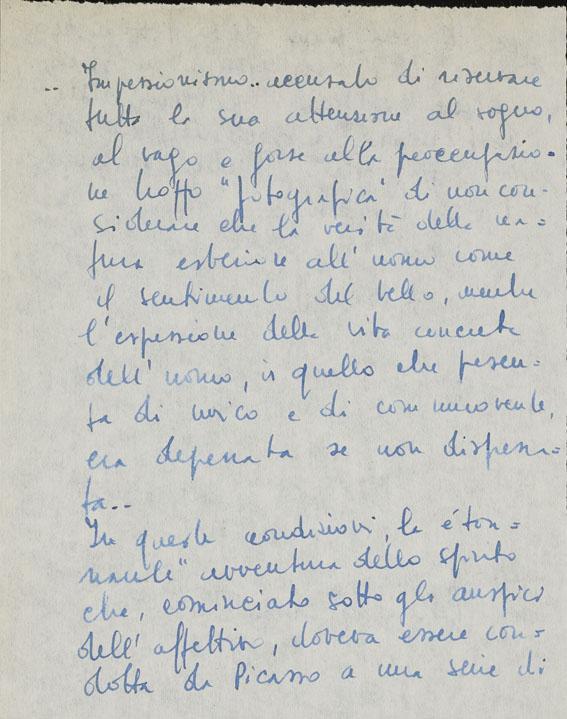 .. Impressionismo.. accusato di riservare
tutta la sua attenzione al sogno,
al vago e forse alla preoccupazio-
ne troppo "fotografica" di non con-
siderare che la verità della na-
tura esteriore all'uomo come
il sentimento del bello, mentre
l'espressione della vita concreta
dell'uomo, in quello che presen-
ta di unico e di commovente,
era depressa se non dispersa-
ta..
In queste condizioni, la "éton-
nante" avventura dello spirito
che, cominciata sotto gli auspici
dell' affettiva, doveva essere con-
dotta da Picasso a una serie di